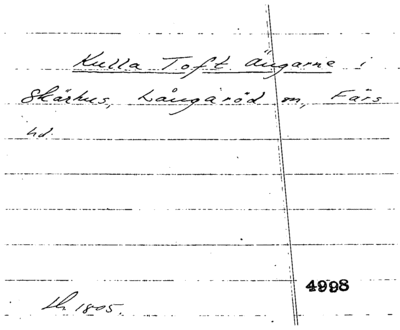 Kulla Toft Ängarne i
Skärhus, Långaröd m, Färs
hd.
4998
Lh 1805.